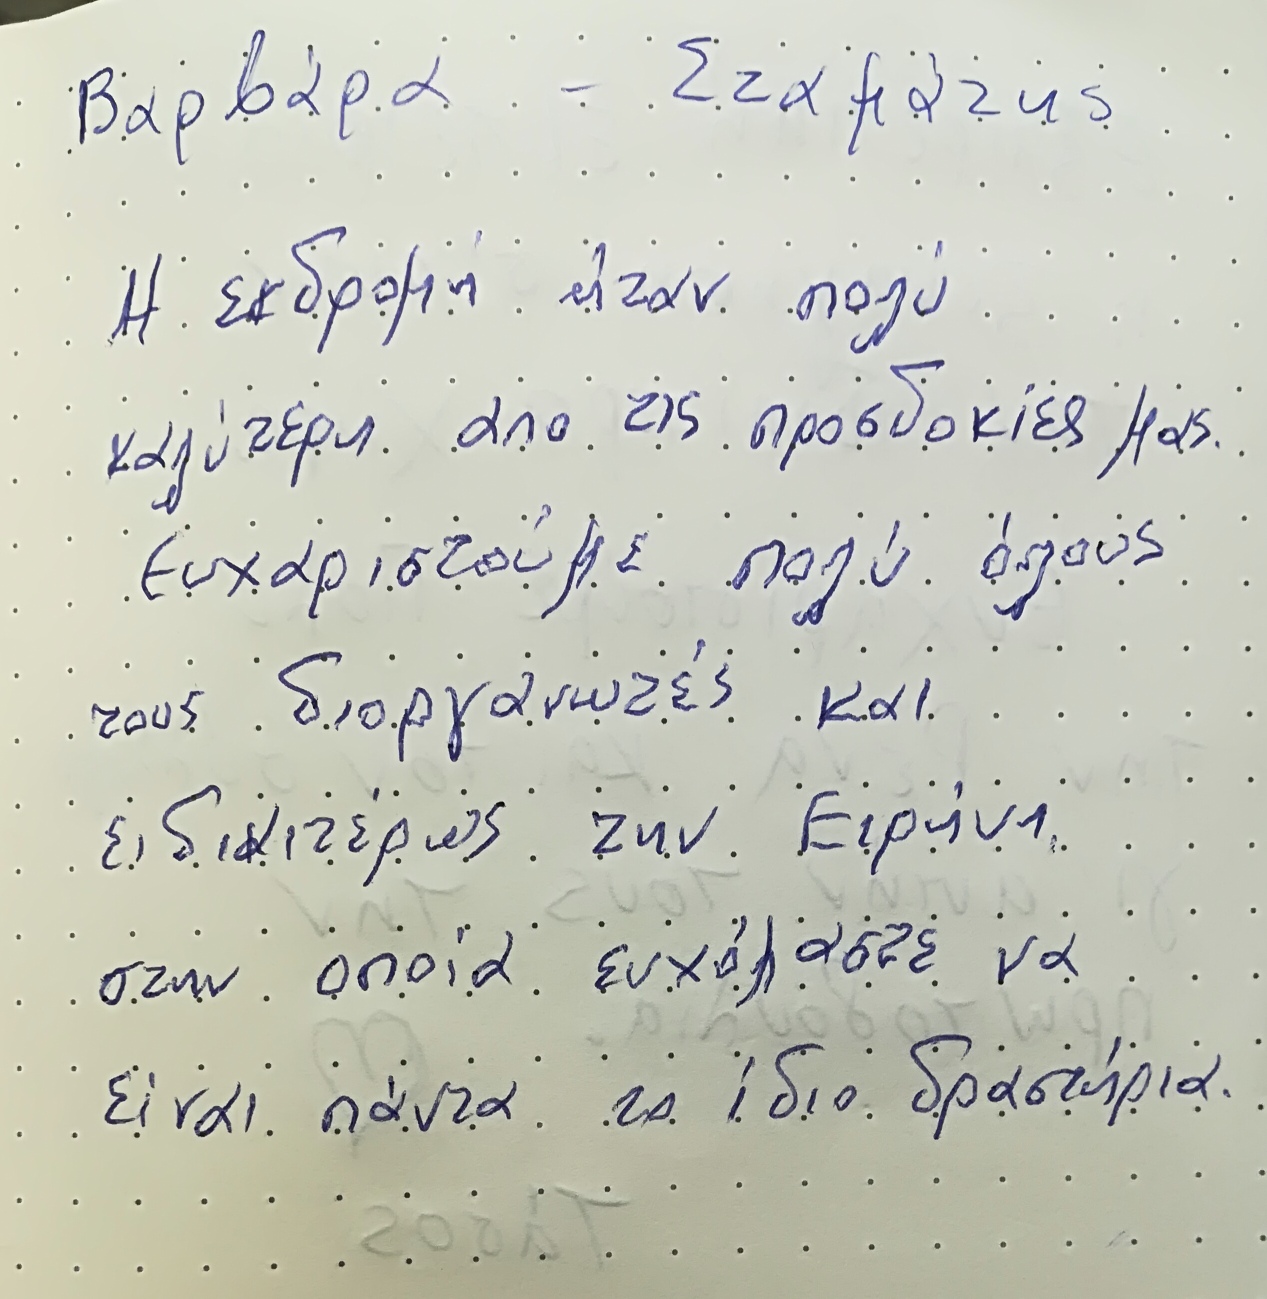 Βαρβάρα - Σταμάτης
Η εκδρομή ήταν πολύ
καλύτερη απο τις προσδοκίες μας.
Ευχαριστούμε πολύ όλους
τους διοργανωτές και
ειδικιτέρως την Ειρήνη,
στην οποία ευχόμαστε να
είναι πάντα το ίδιο δραστήρια.